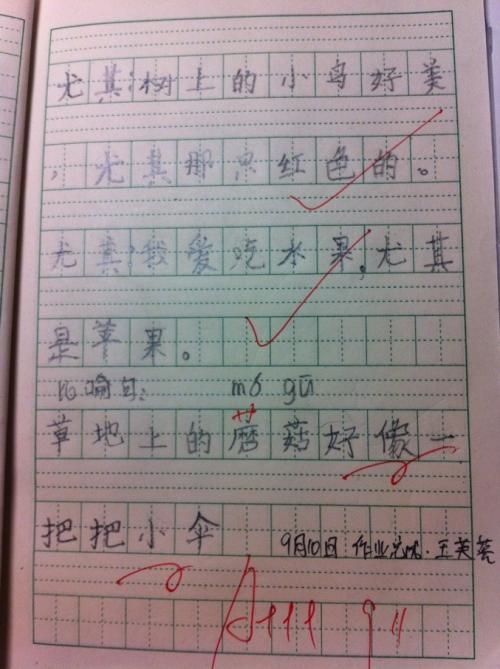 尤其:树上的小鸟好美
，尤其那只红色的。
尤其:我爱吃水果,尤其
是苹果。
比喻句: mó gū
草地上的蘑菇好像一
把把小伞
9月10日 作业完成.王芙蓉
A+++ 9.11